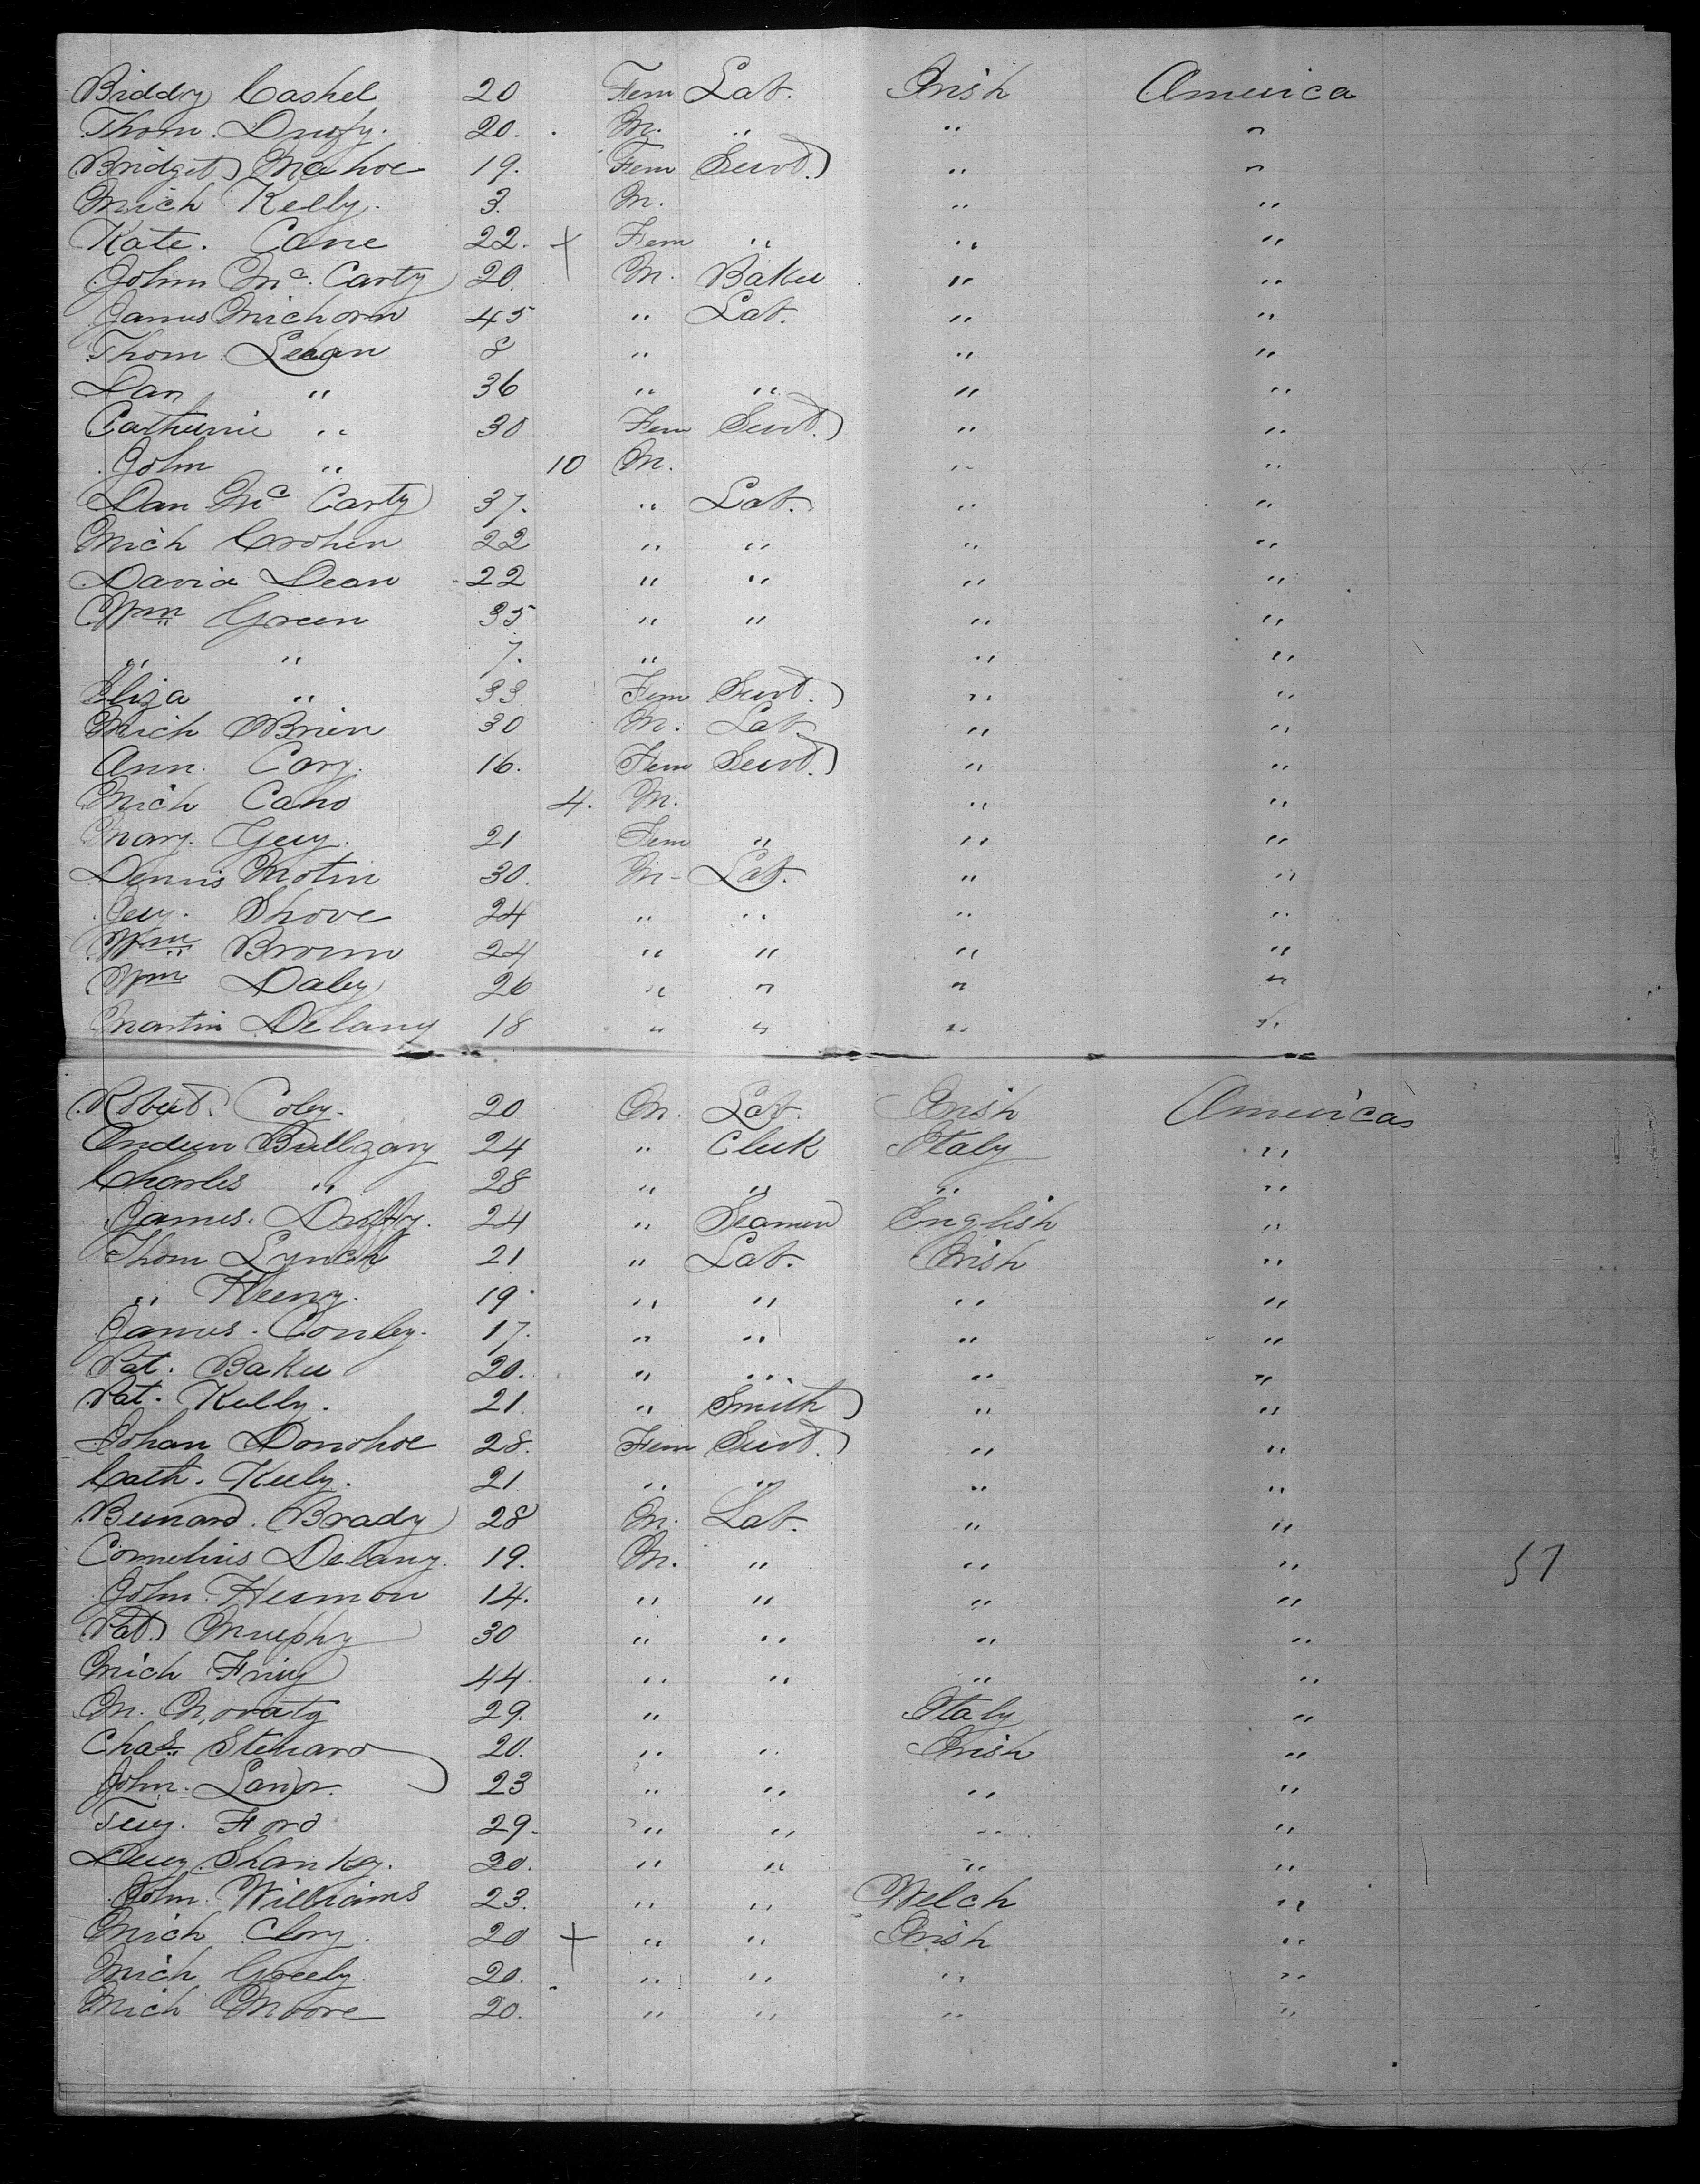 Biddy Cashel 20 Fem Lab. Irish America
Thom. Duffy. 20. M. " " "
Bridget Mahoe 19. Fem Servt. " "
Mich Kelly. 3. M. " "
Kate. Cane 22. + Fem " " "
John Mc. Carty 20. M. Baker " "
James Michorn 45 " Lab. " "
Thom. Lehan 8 " " "
Dan " 36 " " " "
Catherine " 30 Fem Servt. " "
John " 10 M. " "
Dan Mc Carty 37. " Lab. " "
Mich Crohen 22 " " " "
David Dean 22 " " " "
Wm Green 35 " " " "
" " 7. " " "
Eliza " 33 Fem Servt. " "
Mich OBrien 30 M. Lab. " "
Ann. Cary. 16. Fem Servt. " "
Mich Cano 4. M. " "
Mary. Gery. 21 Fem " " "
Dennis Motin 30. M- Lab. " "
Shove 24 " " " "
Wm Brown 24 " " " "
Wm Daley 26 " " " "
Martin Delany 18 " " " "
Robert. Coley. 20 M. Lab. Irish America
Andern Bullgary 24 " Clerk Italy "
Charles " 28 " " " "
James. Duffy. 24 " Seaman English "
Thom Lynch 21 " Lab. Irish "
" Heeny. 19. " " " "
James. Conley. 17. " " " "
Pat. Baker 20. " " " "
Pat. Kelly. 21. " Smith " "
Johan Donohoe 28. Fem Servt. " "
Cath. Keely. 21 " " " "
Bernard. Brady 28 M. Lab. " "
Cornelius Delany. 19. M. " " " 51
John. Hermon 14. " " " "
Pat. Murphy 30 " " " "
Mich 44. " " " "
M. Moraty 29. " Italy "
Chas. Steward 20. " " Irish "
John. 23 " " " "
Ford 29. " " " "
Shanksy. 20. " " " "
John. Williams 23. " " Welch "
Mich Clory. 20 + " " Irish "
Mich Greely. 20. " " " "
Mich Moore 20. " " " "